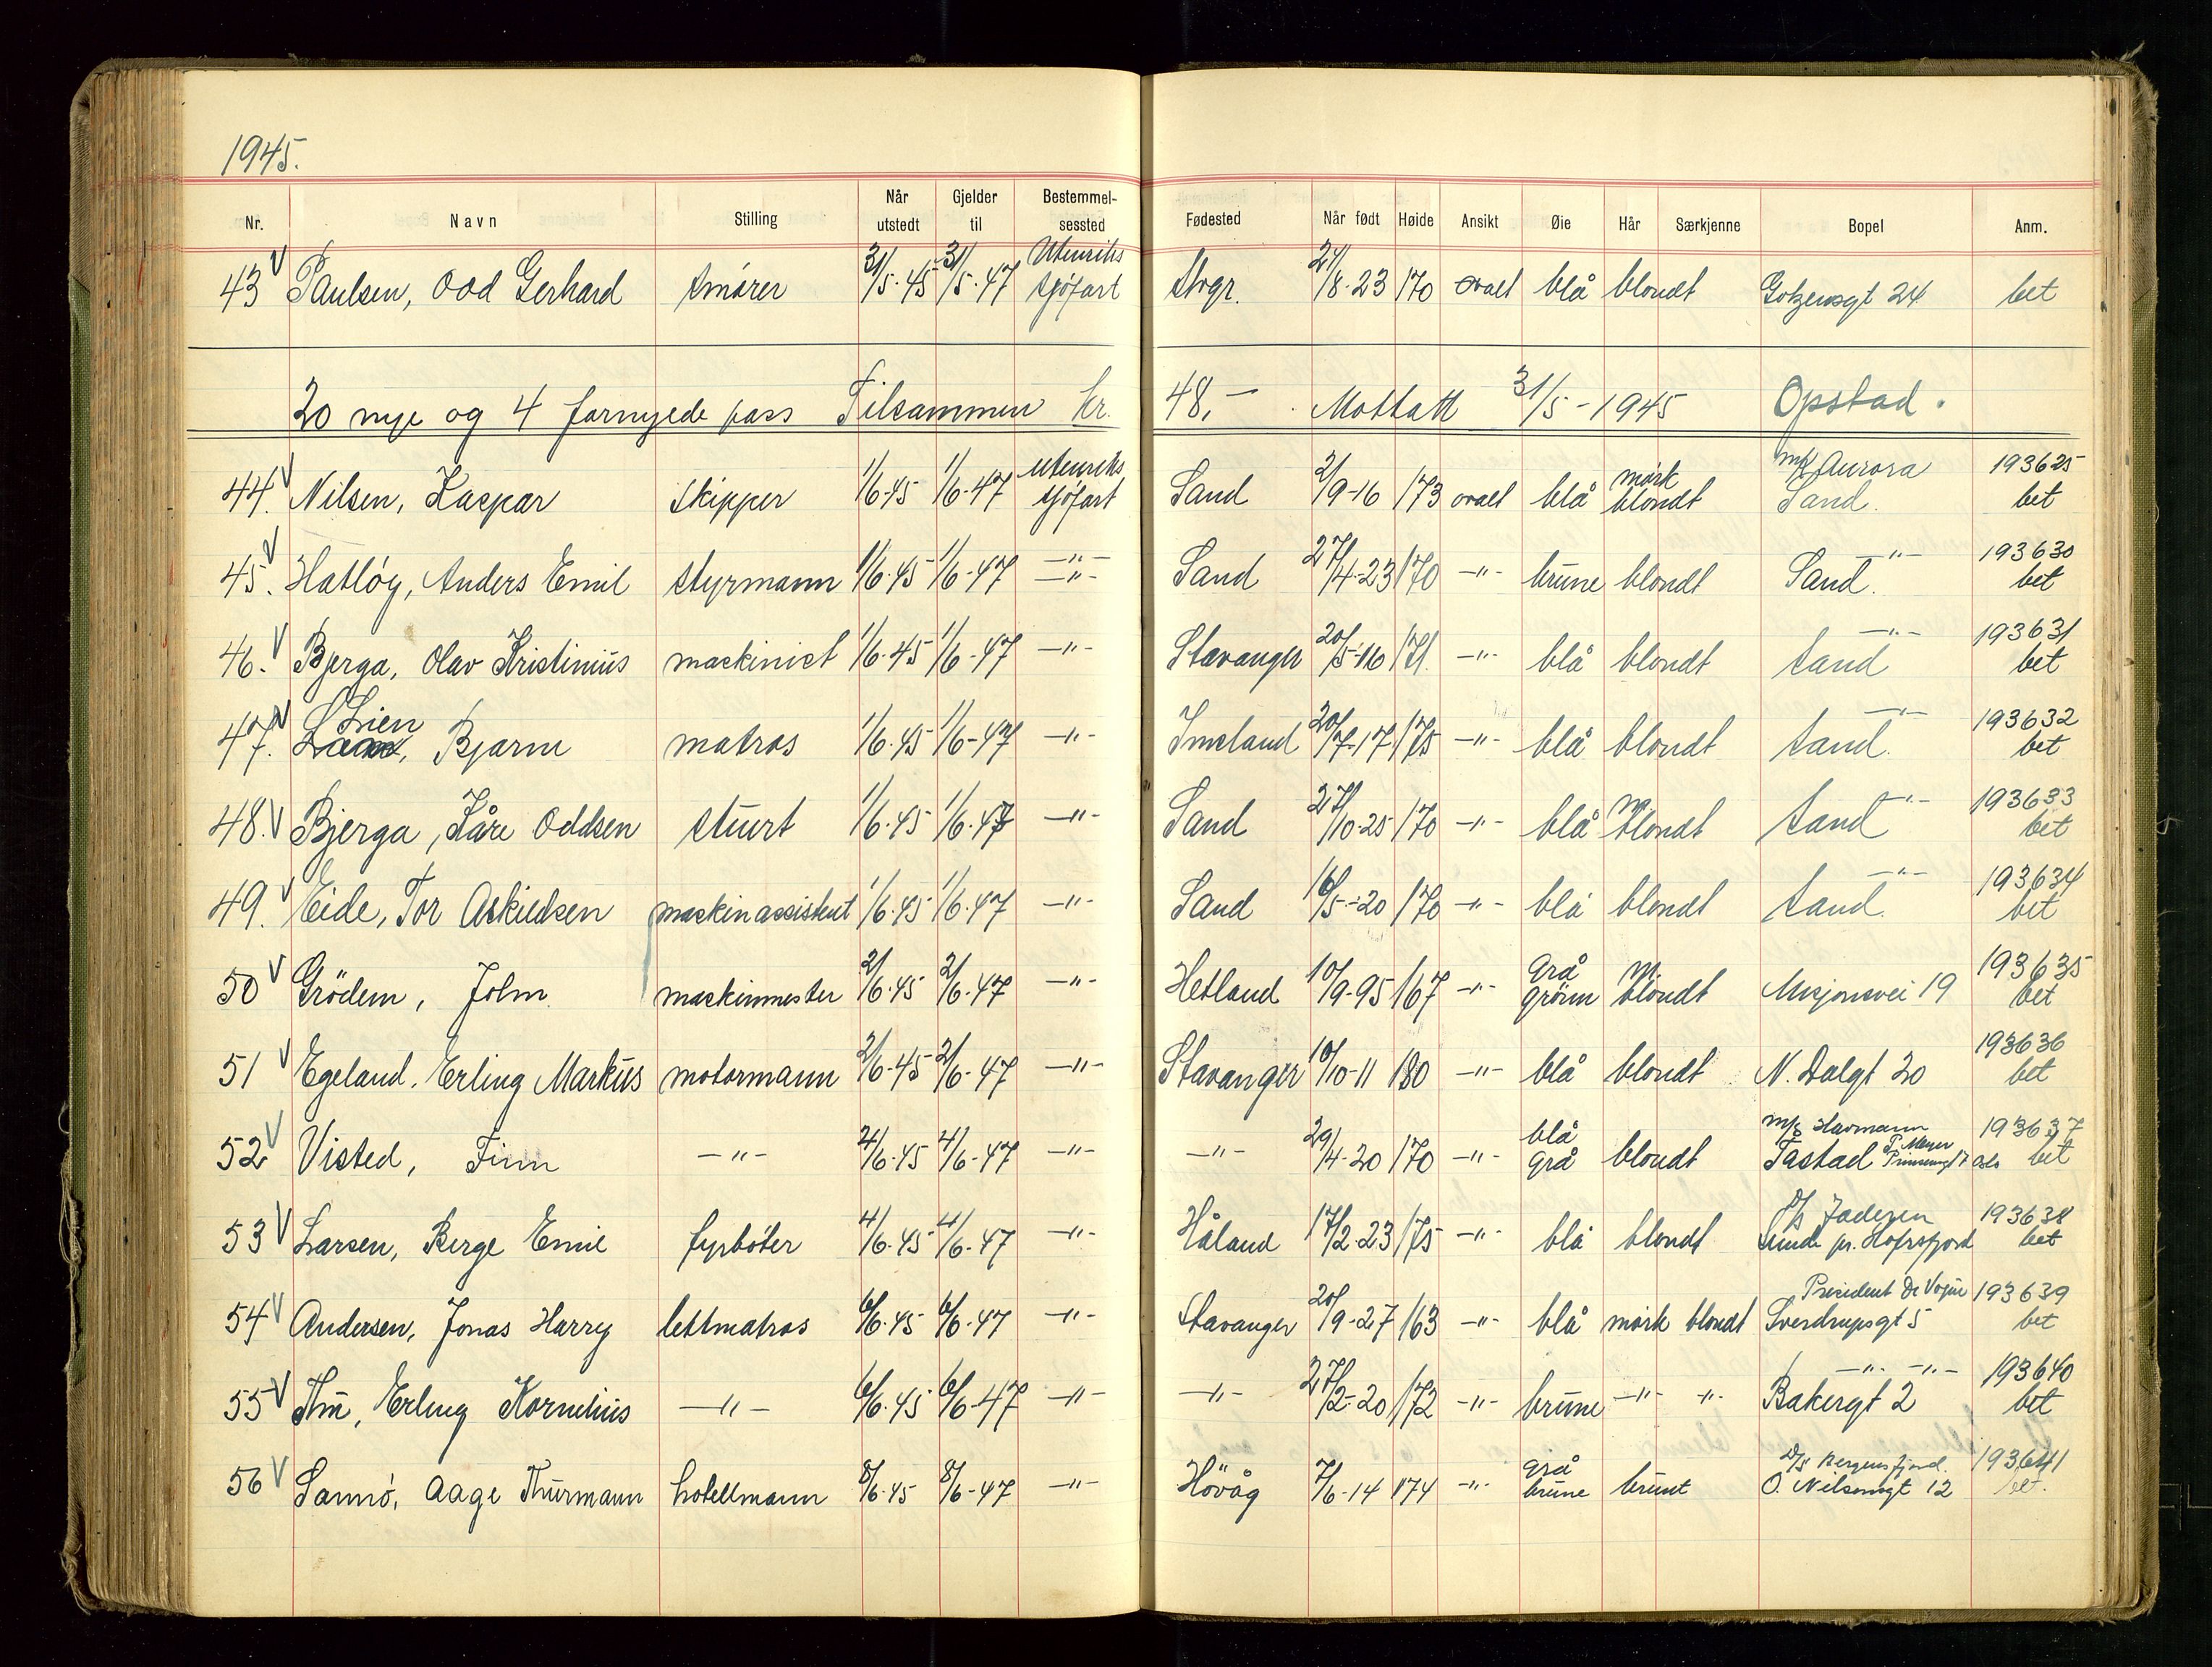 1945.
Nr. Navn Stilling Når utstedt Gjelder til Bestemmel-sessted Fødested Når født Høide Ansikt Øie Hår Særkjenne Bopel Anm.
43 V Paulsen, Odd Gerhard smører 31/5-45 31/5-47 Utenriks sjøfart Stvgr. 21/8-23 170 ovalt blå blondt Gotzensgt 24 bet
20 nye og 4 fornyede pass Tilsammen kr. 48,- Mottatt 31/5-1945 Opstad.
44. V Nilsen, Kaspar skipper 1/6-45 1/6-47 Utenriks sjøfart Sand 2/9-16 173 ovalt blå mørk blondt m/k Aurora Sand. 193625 bet
45. V Hatløy, Anders Emil styrmann 1/6-45 1/6-47 -"- -"- Sand 27/4-23 170 -"- brune blondt -"- Sand. 193630 bet
46. V Bjerga, Olav Kristinius maskinist 1/6-45 1/6-47 -"- Stavanger 20/5-16 171. -"- blå blondt -"- Sand 193631 bet
47. V Lien, Bjarne matros 1/6-45 1/6-47 -"- Imsland 20/7-17 175 -"- blå blondt -"- Sand. 193632 bet
48. V Bjerga, Kåre Oddsen stuert 1/6-45 1/6-47 -"- Sand 27/10-25 170 -"- blå m. blondt -"- Sand 193633 bet
49. V Eide, Tor Askildsen maskinassistent 1/6-45 1/6-47 -"- Sand 16/5-20 170 -"- blå blondt -"- Sand. 193634 bet
50 V Grödem, John maskinmester 2/6-45 2/6-47 -"- Hetland 10/9-95 167 -"- grå grönn m. blondt Misjonsvei 19 193635 bet
51 V Egeland, Erling Markus motormann 2/6-45 2/6-47 -"- Stavanger 10/10-11 180 -"- blå blondt N. Dalgt 20 193636 bet
52 V Visted, Finn -"- 4/6-45 4/6-47 -"- -"- 29/4-20 170 -"- blå grå blondt m/s Havmann Tastad P. Meyer Prinsensgt 7 Oslo 193637 bet
53 V Larsen, Berge Emil fyrbøter 4/6-45 4/6-47 -"- Håland 17/2-23 175 -"- blå blondt D/s Jaderen Sunde pr. Hafrsfjord 193638 bet
54 V Andersen, Jonas Harry lettmatros 6/6-45 6/6-47 -"- Stavanger 20/9-27 163 -"- blå mørk blondt President De Vogue Sverdrupsgt 5 193639 bet
55 V Erling Kornelius -"- 6/6-45 6/6-47 -"- -"- 27/2-20 172 -"- brune -"- -"- -"- -"- Bakergt 2 193640 bet
56 V Sannø, Aage Thurmann hotellmann 8/6-45 8/6-47 -"- Hövåg 7/6-14 174 -"- grå brune brunt D/s Bergensfjord. O. Nilsensgt 12 193641 bet.